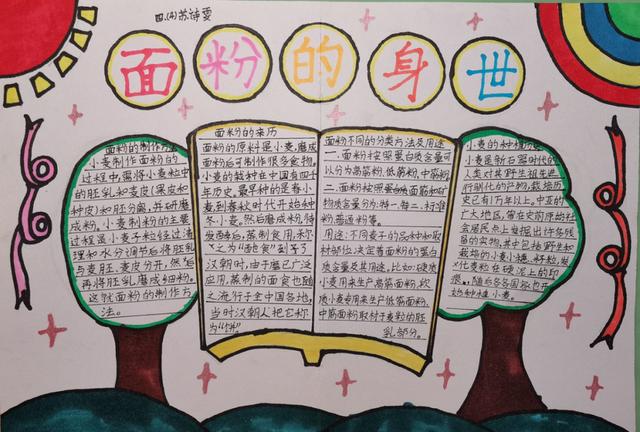 四.(4)苏诗雯
面粉的身世
面粉的制作方法
小麦制作面粉的
过程中,需将小麦粒中
的胚乳和麦皮(果皮和
种皮)和胚分离,并研磨
成粉。小麦制粉的主要
过程是小麦子粒经过清
理和水分调节后将胚乳
与麦胚、麦皮分开,然后
再将胚乳磨成细粉。
这就面粉的制作方
法。
面粉的来历
面粉的原料是小麦,磨成
面粉后可制作很多食物。
小麦的栽种在中国有四千
年历史。最早种的是春小
麦,到春秋时代开始种
冬小麦,然后磨成粉,待
发酵后,蒸制食用,称
之为“酏食”到了
汉朝时,由于磨已广泛
应用,蒸制的面食也随
之流行于全中国各地,
当时汉朝人把它称
为“饼”
面粉不同的分类方法及用途
一.面粉按照蛋白质含量可
以分为高筋粉,低筋粉,中筋粉
二.面粉按照
物质含量分为:特一,特二,标准
粉,普通粉等。
用途:不同麦子的品种和取
材部位,决定着面粉的蛋白
质含量及其用途。比如:硬质
小麦用来生产高筋面粉,软
质小麦专用来生产低筋面粉。
中筋面粉取材于麦粒的胚
乳部分。
小麦的种植历史
小麦是新石器时代的
人类对其野生祖先进
行驯化的产物,栽培历
史已有1万年以上。中亚的
广大地区,曾在史前原始社
会居民点上发掘出许多残
留的实物,其中包括野生和
栽培的小麦小穗、籽粒,炭
化麦粒在硬泥上的印
痕。随后各各国家也开
始种植小麦。